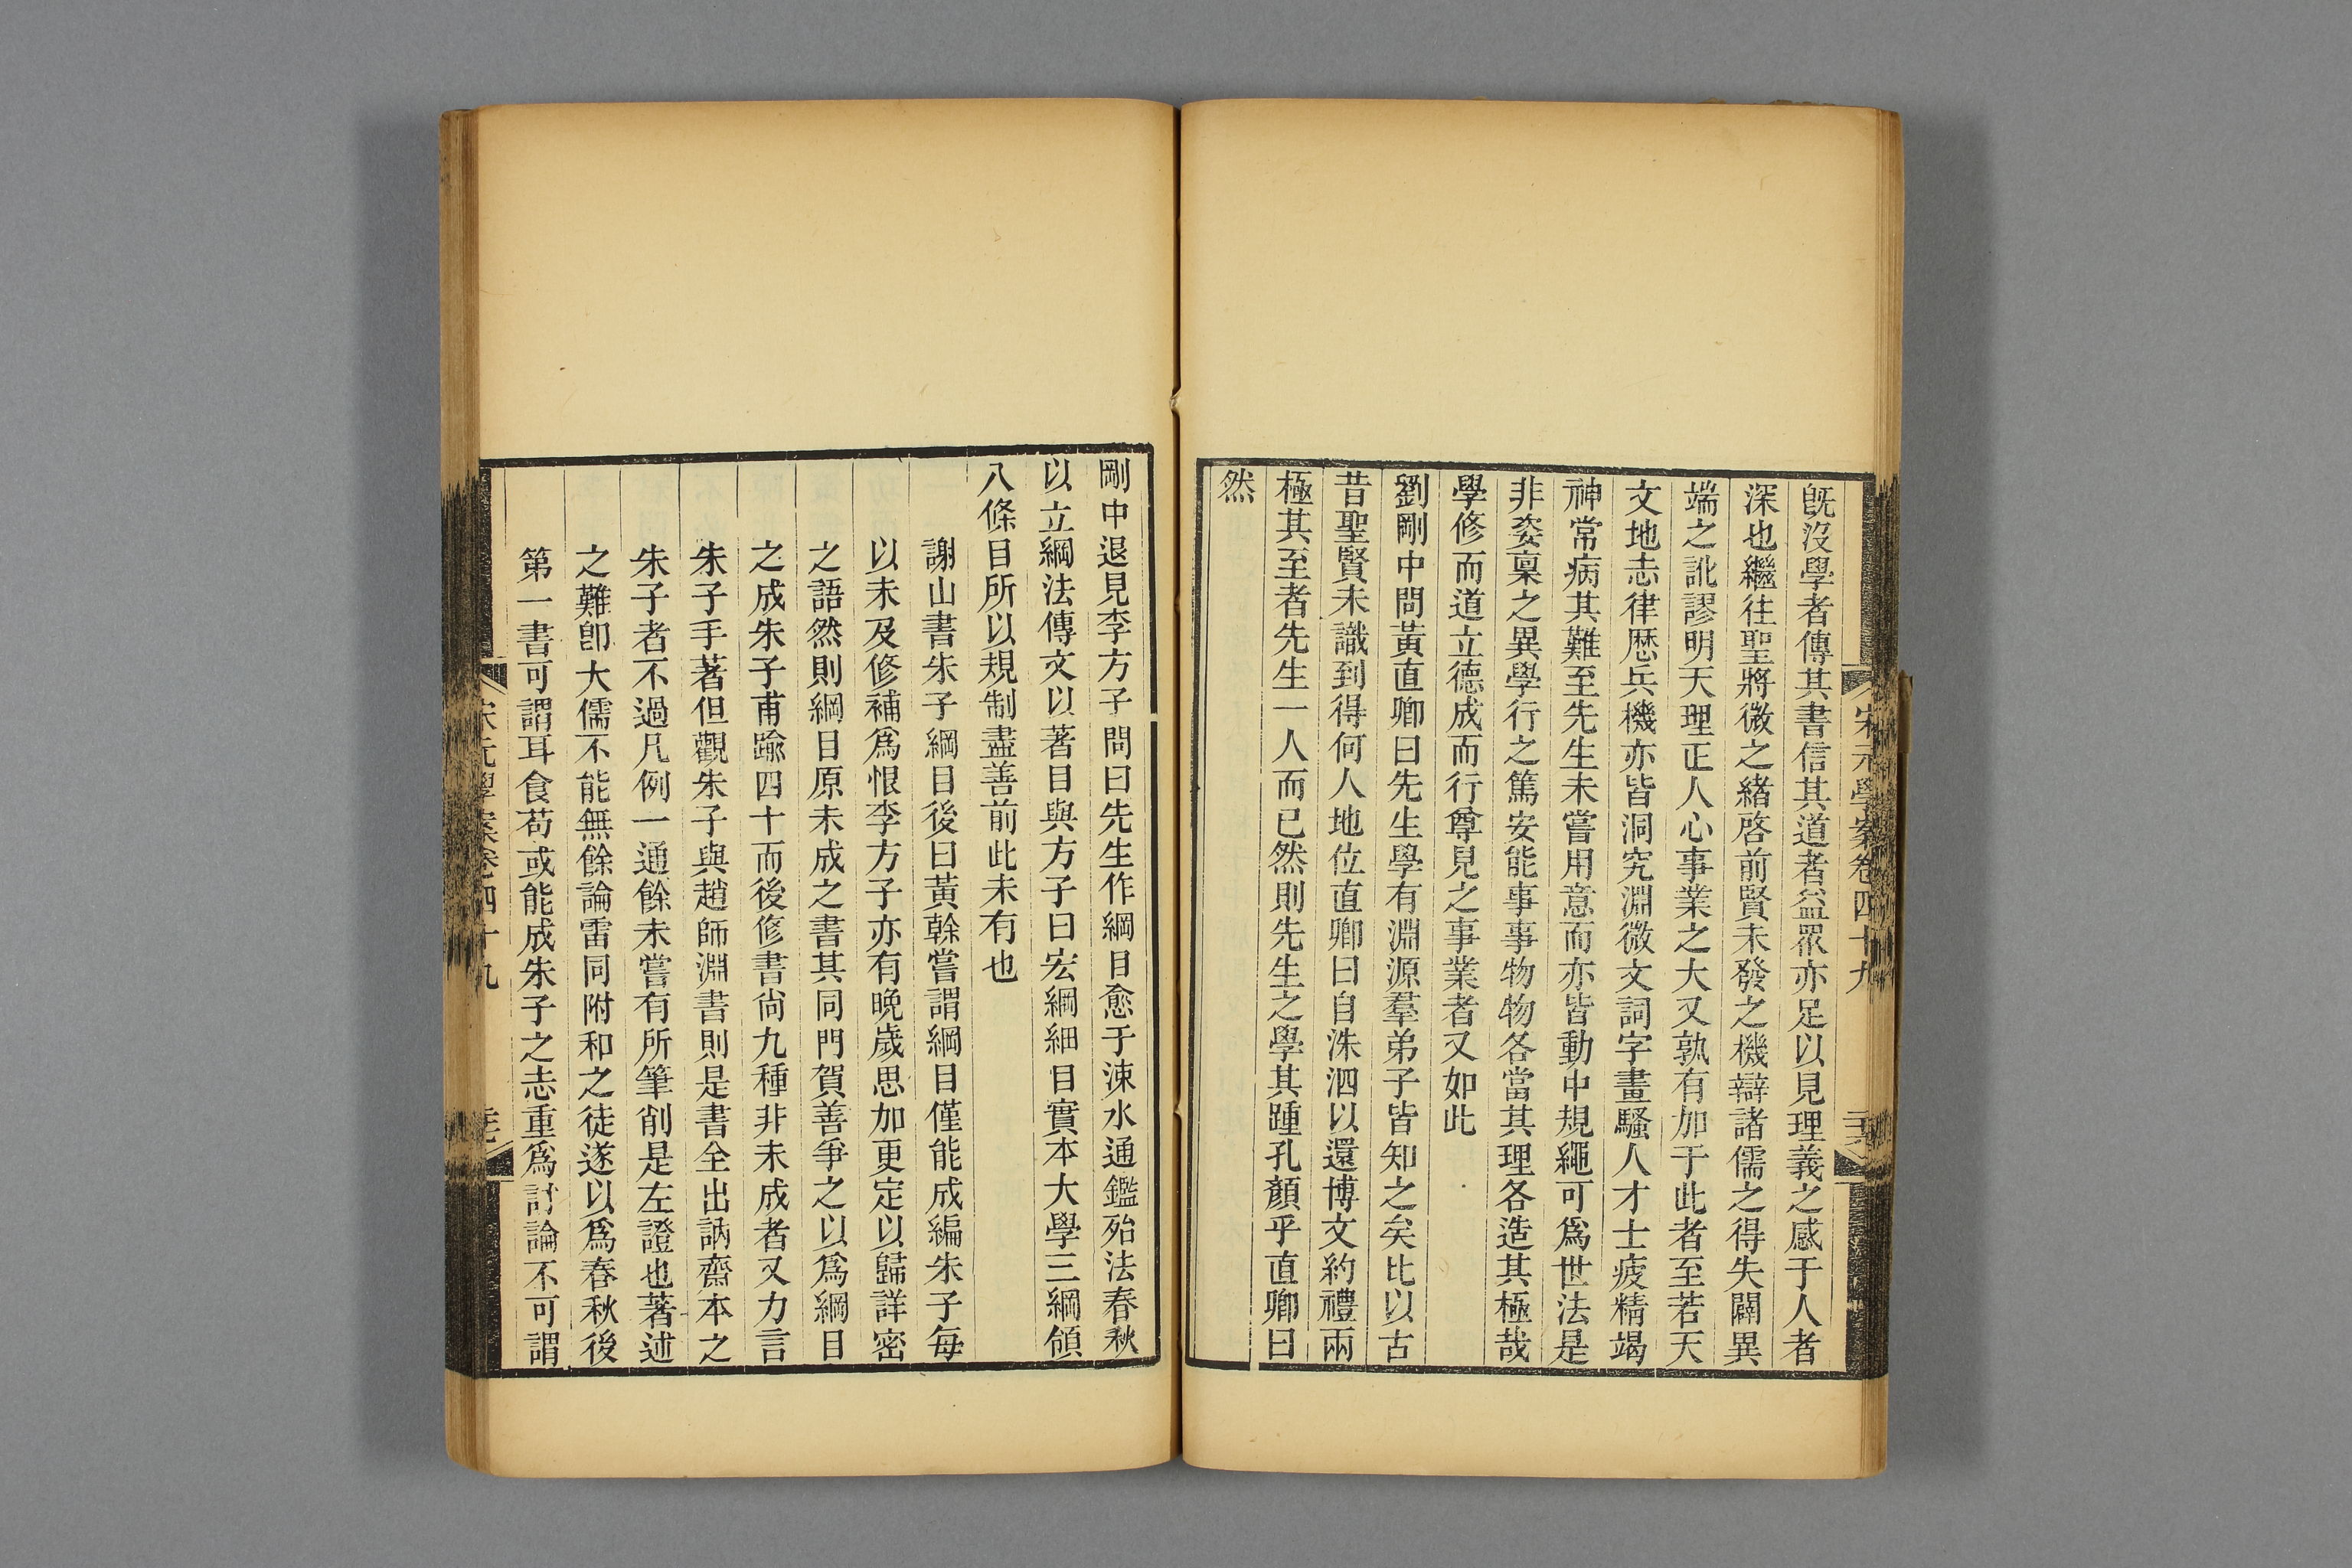 宋元學案卷四十九
既沒學者傳其書信其道者益眾亦足以見理義之感于人者
深也繼往聖將微之緒啓前賢未發之機辯諸儒之得失闢異
端之訛謬明天理正人心事業之大又孰有加于此者至若天
文地志律歷兵機亦皆洞究淵微文詞字畫騷人才士疲精竭
神常病其難至先生未嘗用意而亦皆動中規繩可爲世法是
非姿稟之異學行之篤安能事事物物各當其理各造其極哉
學修而道立德成而行尊見之事業者又如此
劉剛中問黃直卿曰先生學有淵源羣弟子皆知之矣比以古
昔聖賢未識到得何人地位直卿曰自洙泗以還博文約禮兩
極其至者先生一人而已然則先生之學其踵孔顏乎直卿曰
然
剛中退見李方子問曰先生作綱目愈于涑水通鑑殆法春秋
以立綱法傳文以著目與方子曰宏綱細目實本大學三綱領
八條目所以規制盡善前此未有也
謝山書朱子綱目後曰黃榦嘗謂綱目僅能成編朱子每
以未及修補爲恨李方子亦有晚歲思加更定以歸詳密
之語然則綱目原未成之書其同門賀善爭之以爲綱目
之成朱子甫踰四十而後修書尚九種非未成者又力言
朱子手著但觀朱子與趙師淵書則是書全出訥齋本之
朱子者不過凡例一通餘未嘗有所筆削是左證也著述
之難卽大儒不能無餘論雷同附和之徒遂以爲春秋後
第一書可謂耳食苟或能成朱子之志重爲討論不可謂
宋元學案卷四十九